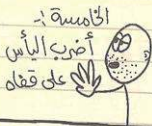 الخامسة :-
أضرب اليأس
على قفاه